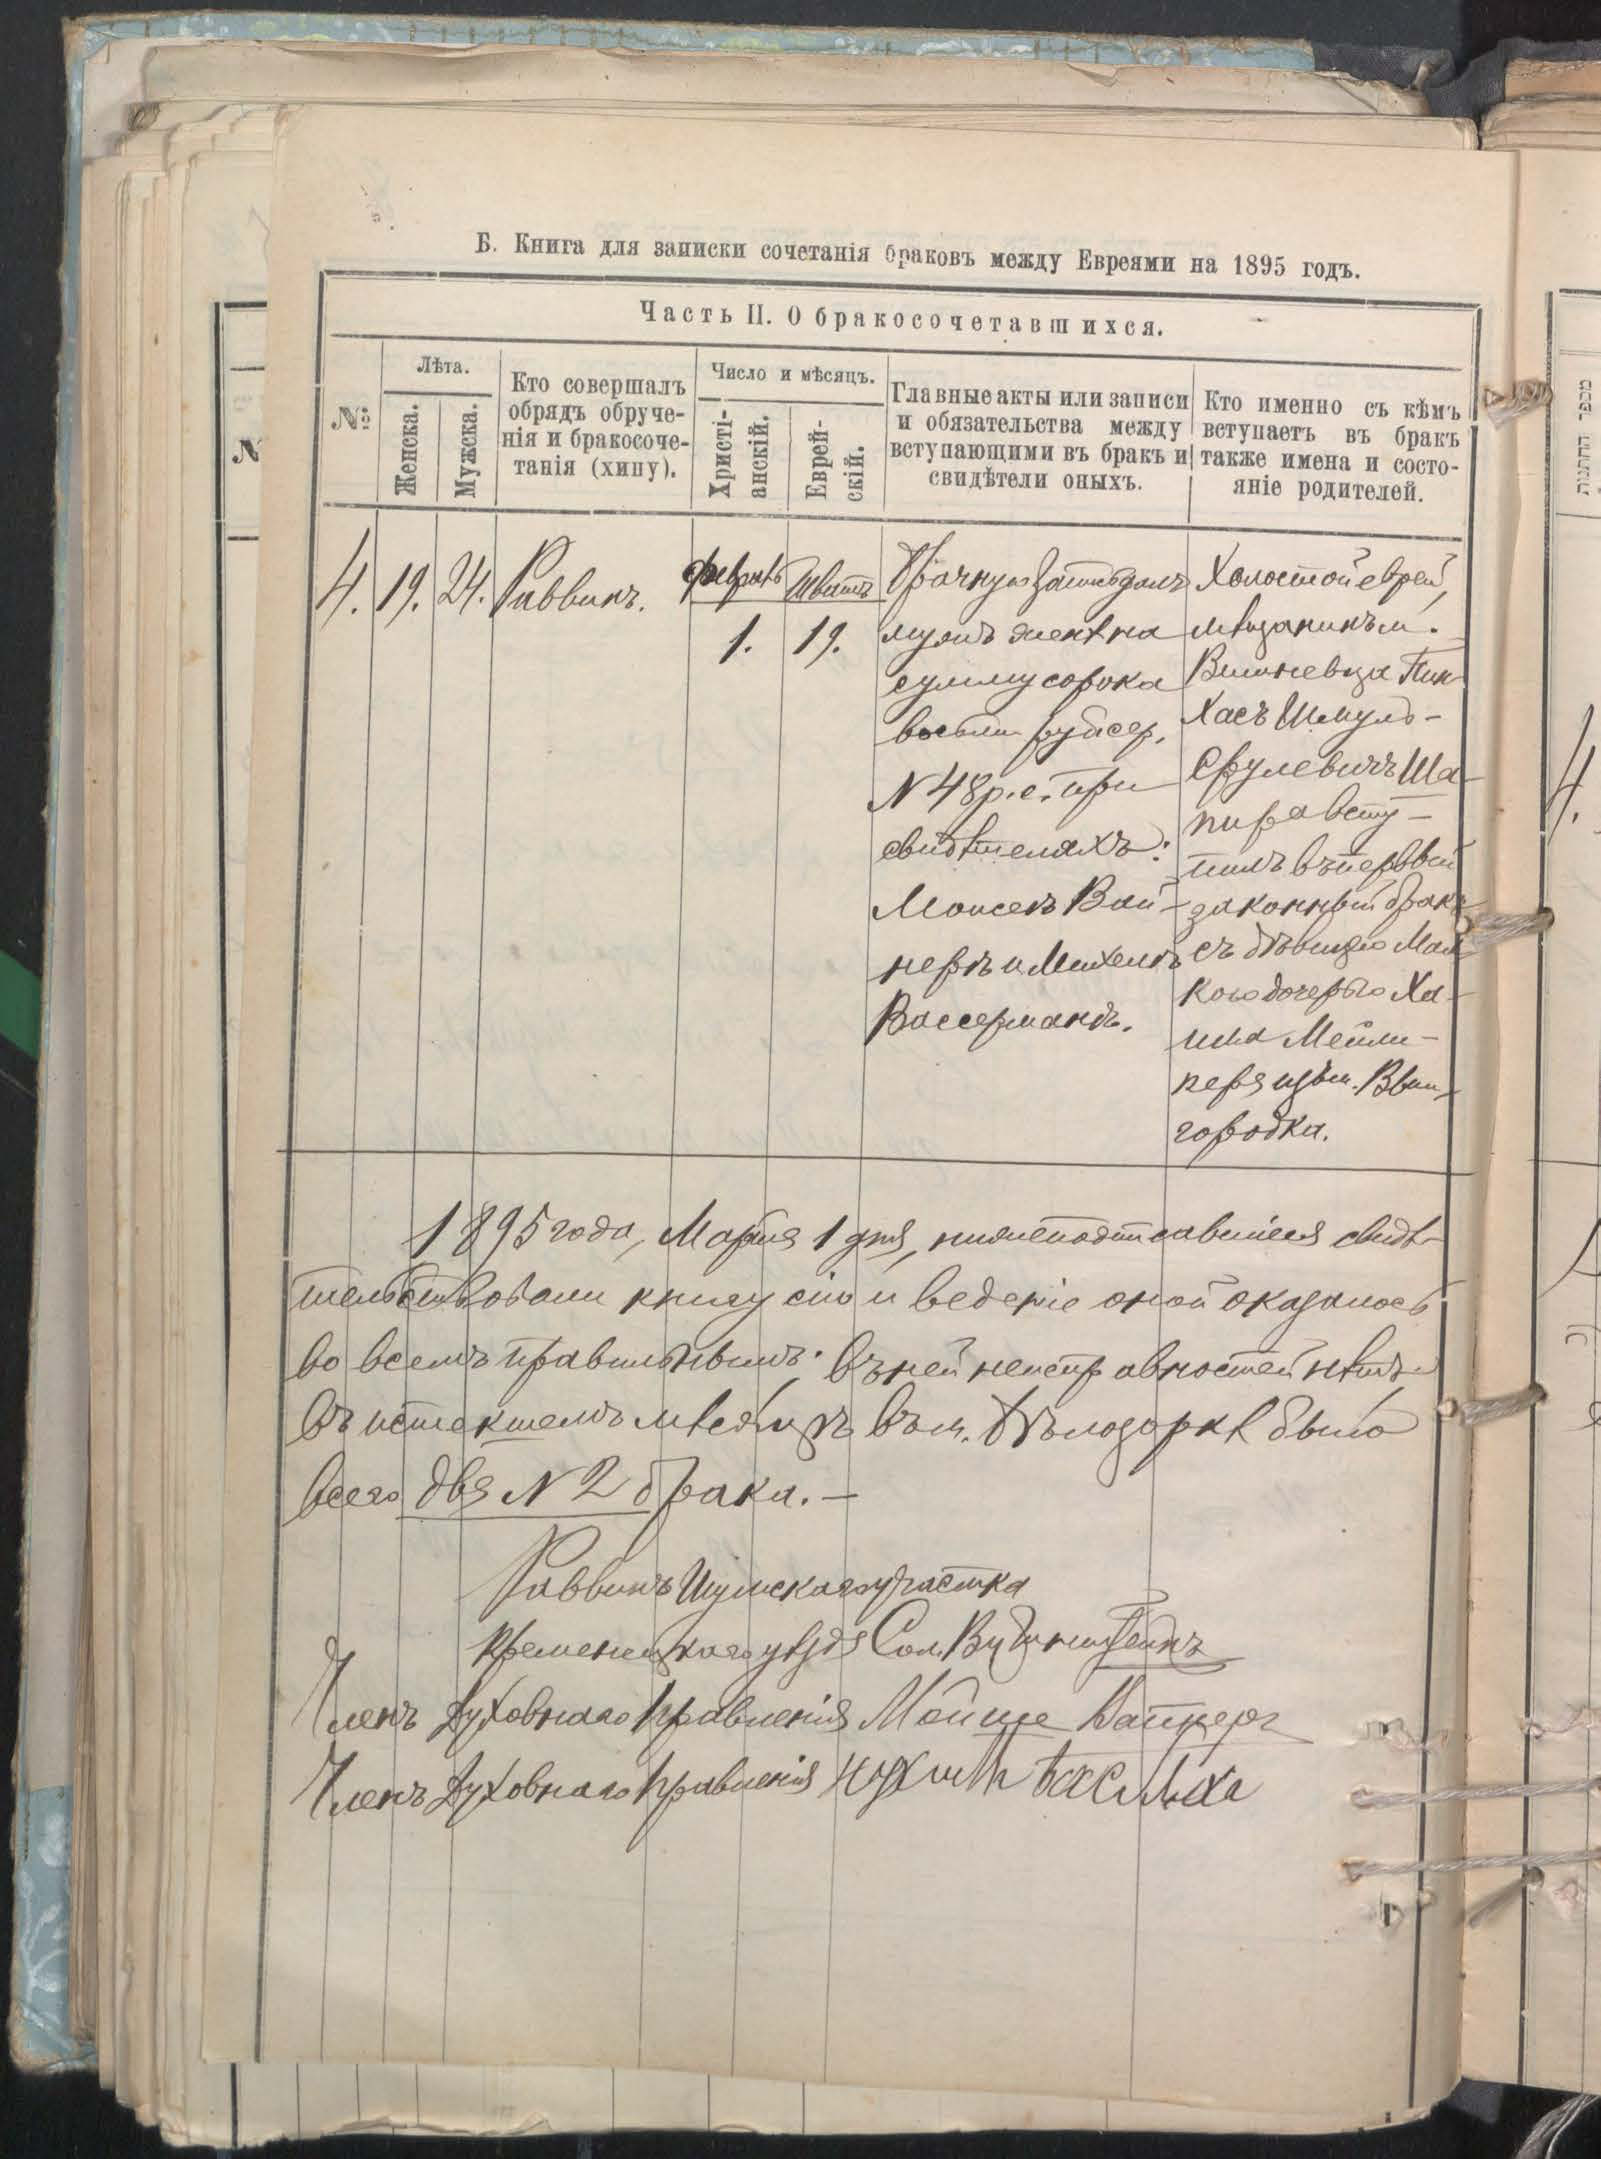 Б. Книга для записки сочетанія браковъ между Евреями на 1895 годъ.
Часть II. О бракосочетавшихся.
№
Лѣта.
Женска.
Мужска.
Кто совершалъ
обрядъ обруче-
нія и бракосоче-
танія (хипу).
Число и мѣсяцъ.
Христі-
анскій.
Еврей-
скій.
Главные акты или записи
и обязательства между
вступающими въ бракъ и
свидѣтели оныхъ.
Кто именно съ кѣмъ
вступаетъ въ бракъ
также имена и состо-
яніе родителей.
4.
19.
24.
Раввинъ.
Февраль
1.
Шватъ
19.
Брачную запись далъ
мужъ женѣ на
сумму сорока
восьми руб. сер.
№ 48 р. с. при
свидѣтеляхъ:
Моисеѣ Вай-
нерѣ и Михелѣ
Вассерманѣ.
Холостой еврей,
мѣщанинъ м.
Вишневца Пин-
хасъ Шмуль-
Срулевичъ Ша-
пира всту-
пилъ въ первый
законный бракъ
съ дѣвицею Мал-
кою дочерью Ха-
има
изъ м.
городка.
1895 года, Марта 1 дня, нижеподписавшіеся свидѣ-
тельствовали книгу сію и веденіе оной оказалось
во всемъ правильнымъ; въ ней неисправностей нѣтъ и
въ истекшемъ мѣсяцѣ въ м. Бѣлозоркѣ было
всего два № 2 брака. —
Раввинъ Шумскаго участка
Кременецкаго уѣзда Сол.
Членъ Духовнаго Правленія Мойше Вайнерг
Членъ Духовнаго Правленія
מספר החתנות
4.
№